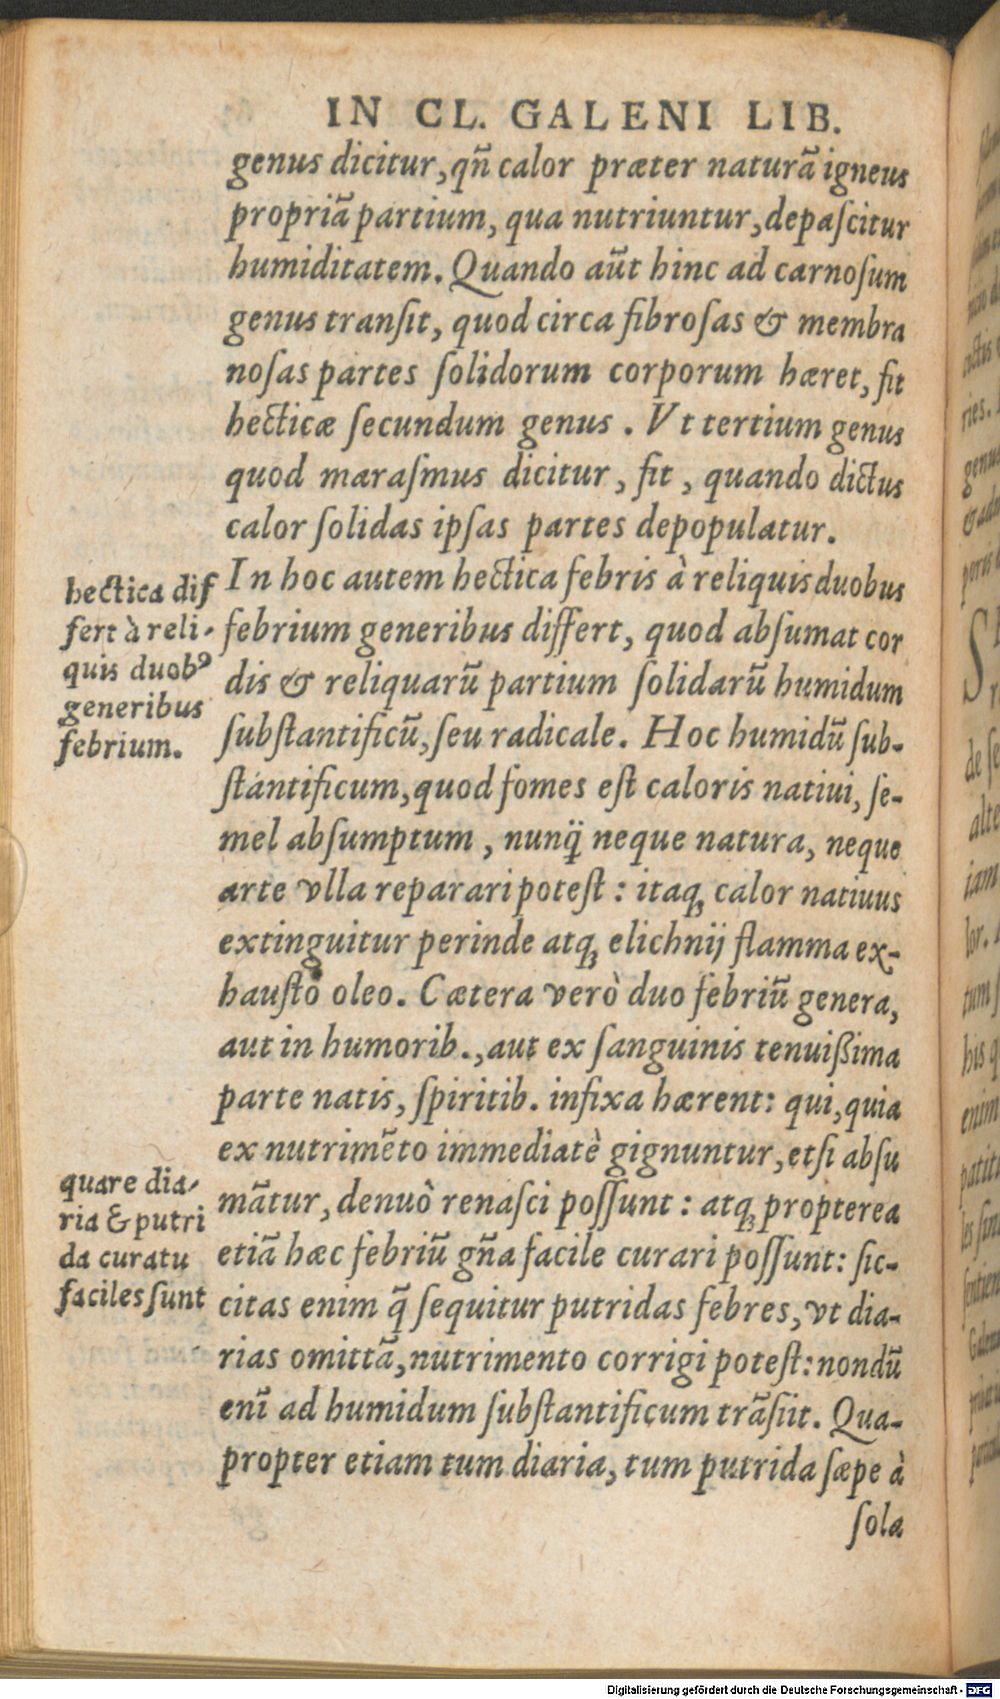 IN CL. GALENI LIB.
genus dicitur, qñ calor præter naturã igneus
propriã partium, qua nutriuntur, depaſcitur
humiditatem. Quando aũt hinc ad carnoſum
genus tranſit, quod circa fibroſas & membra
noſas partes ſolidorum corporum hæret, fit
hecticæ ſecundum genus . Vt tertium genus
quod maraſmus dicitur , fit , quando dictus
calor ſolidas ipſas partes depopulatur.
In hoc autem hectica febris à reliquis duobus
febrium generibus differt, quod abſumat cor
dis & reliquarũ partium ſolidarũ humidum
ſubſtantificũ, ſeu radicale. Hoc humidũ ſub-
ſtantificum, quod fomes eſt caloris natiui, ſe-
mel abſumptum , nunq̃ neque natura, neque
arte vlla reparari poteſt : itaq; calor natiuus
extinguitur perinde atq; elichnij flamma ex-
hauſto oleo. Cætera verò duo febriũ genera,
aut in humorib., aut ex ſanguinis tenuißima
parte natis, ſpiritib. infixa hærent: qui, quia
ex nutrimẽto immediatè gignuntur, etſi abſu
mãtur, denuò renaſci poſſunt : atq; propterea
etiã hæc febriũ gña facile curari poſſunt: ſic-
citas enim q̃ ſequitur putridas febres, vt dia-
rias omittã, nutrimento corrigi poteſt: nondũ
enĩ ad humidum ſubſtantificum trãſiit. Qua-
propter etiam tum diaria, tum putrida ſæpe à
ſola
hectica dif
fert à reli-
quis duobꝰ
generibus
febrium.
quare dia-
ria & putri
da curatu
faciles ſunt
Digitalisierung gefördert durch die Deutsche Forschungsgemeinschaft - DFG